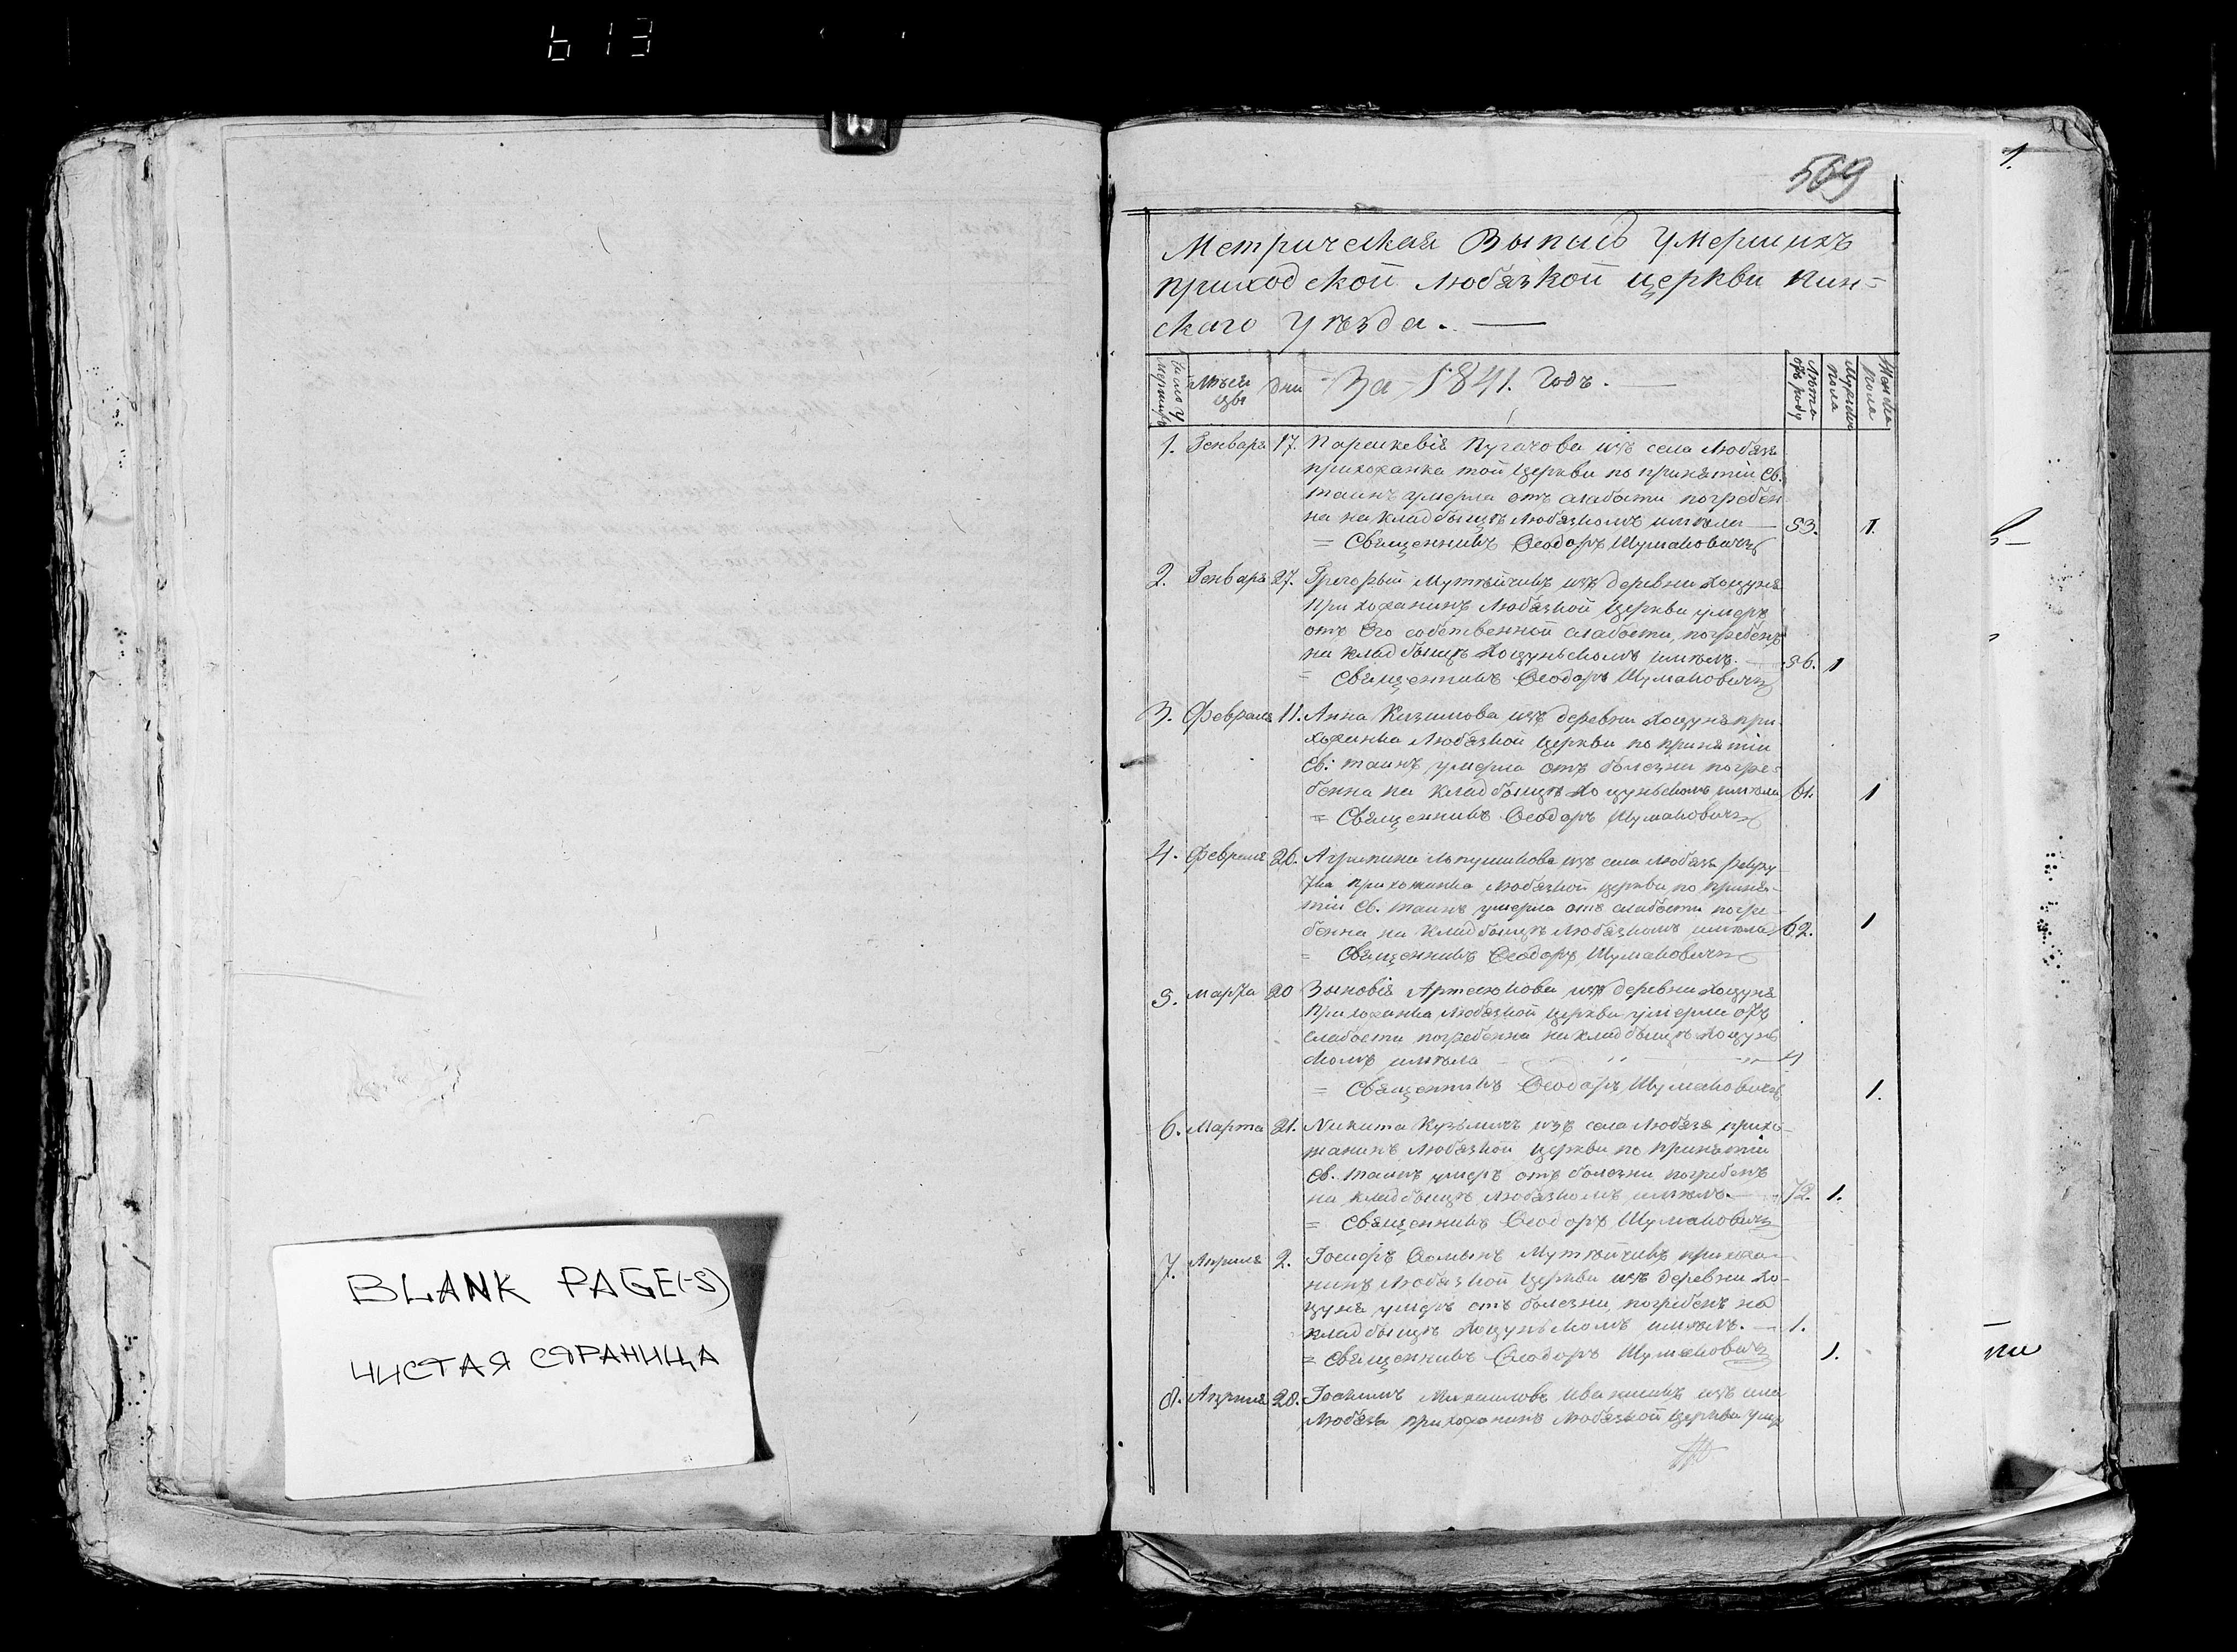 613
BLANK PAGE(-S)
ЧИСТАЯ СТРАНИЦА
569
1.
Метрическая Выпись Умершихъ
приходской Любязкой церкви Пин=
скаго Уѣзда. —
Число Умершихъ
Мѣсяцы
Дни
За 1841. Годъ. —
Лѣта отъ роду
Мужеска пола
Женска пола
1. Генваря 17. Параскевія Пугачова изъ села Любязя
прихожанка той Церкви по принятіи Св.
таинъ умерла отъ слабости погребен
на на кладбыщѣ Любязкомъ имѣла — 53. 1.
= Священникъ Ѳеодоръ Шумаковичъ
2. Генваря 27. Григорый Мутѣйчикъ изъ деревни Хоцуня
Прихожанинъ Любязкой Церкви умеръ
отъ Его собственной слабости, погребенъ
на кладбыщѣ Хоцуньскомъ имѣлъ. — 56. 1
= Священникъ Ѳеодоръ Шумаковичъ
3. Февраля 11. Анна изъ деревни Хоцуня при
хожанка Любязкой Церкви по принятіи
Св: таинъ умерла отъ болезни погре=
бенна на кладбыщѣ Хоцуньскомъ имѣла 61. 1
= Священникъ Ѳеодоръ Шумаковичъ
4. Февраля 26. Агрипина изъ села Любязя
прихожанка Любязкой церкви по приня-
тіи Св. таинъ умерла отъ слабости погре-
бенна на кладбыщѣ Любязкомъ имѣла 62. 1
= Священникъ Ѳеодоръ Шумаковичъ
5. Марта 20 Зыновія Артесюкова изъ деревни Хоцуня
Прихожанка Любязкой церкви умерла отъ
слабости погребенна на кладбыщѣ Хоцунь
скомъ имѣла — 4
= Священникъ Ѳеодоръ Шумаковичъ 1.
6. Марта 21. Никита Кузьмичъ изъ села Любязя прихо-
жанинъ Любязкой Церкви по принятіи
Св. таинъ умеръ отъ болезни погребенъ
на кладбыщѣ Любязкомъ имѣлъ. — 72. 1.
= Священникъ Ѳеодоръ Шумаковичъ
7. Апреля 2. Іосифъ Мутѣйчикъ прихожа-
нинъ Любязкой Церкви изъ деревни Хо-
цуня умеръ отъ болезни, погребенъ на
кладбыщѣ Хоцуньскомъ имѣлъ. — 1.
= Священникъ Ѳеодоръ Шумаковичъ 1.
8. Апреля 28. Іоакимъ Михаиловъ изъ села
Любязя прихожанинъ Любязкой Церкви умер